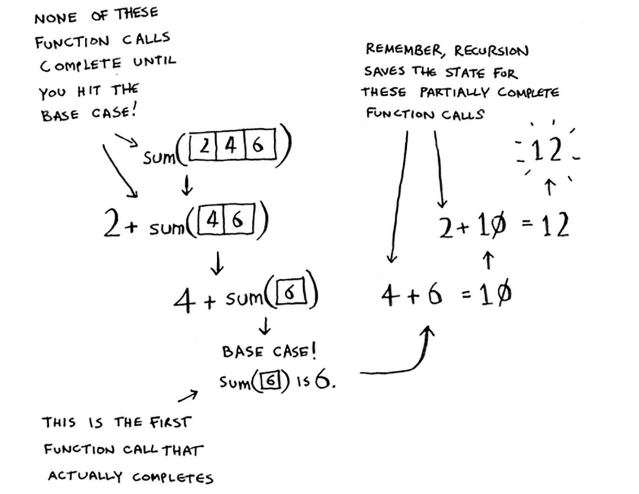 NONE OF THESE
FUNCTION CALLS
COMPLETE UNTIL
YOU HIT THE
BASE CASE!
REMEMBER, RECURSION
SAVES THE STATE FOR
THESE PARTIALLY COMPLETE
FUNCTION CALLS
SUM([2][4][6])
2+ SUM([4][6])
4 + SUM([6])
BASE CASE!
SUM([6]) IS 6.
THIS IS THE FIRST
FUNCTION CALL THAT
ACTUALLY COMPLETES
12
2+ 10 = 12
4 + 6 = 10